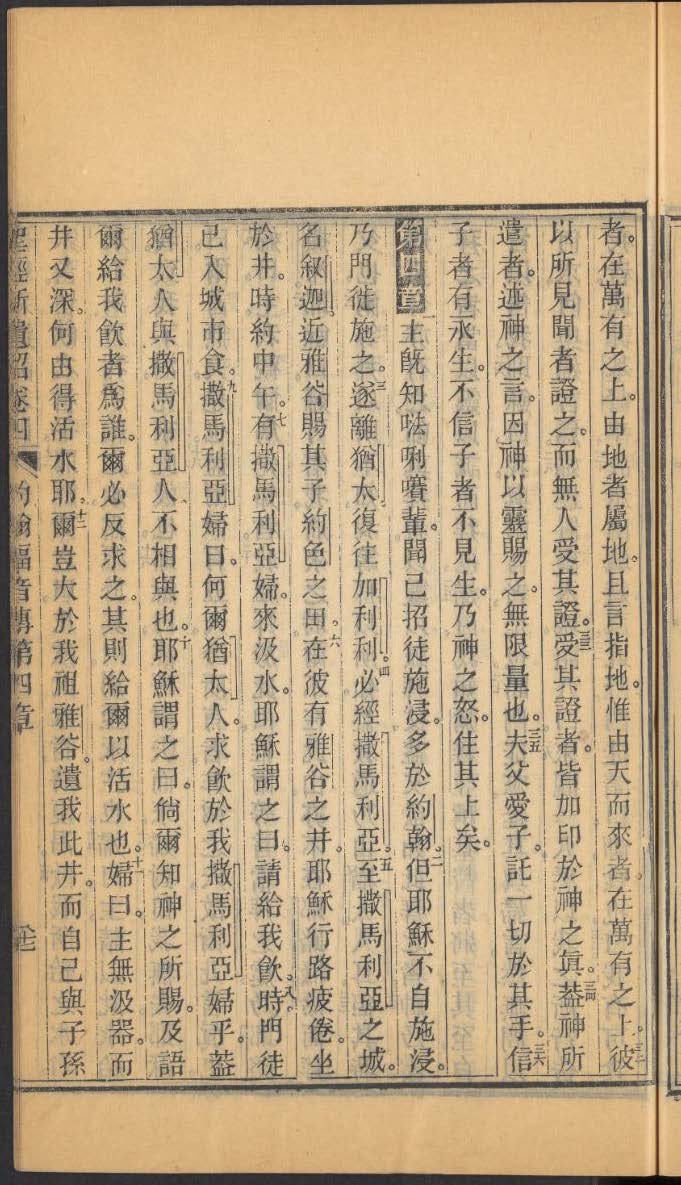 者。在萬有之上。由地者屬地。且言指地。惟由天而來者。在萬有之上。三二彼
以所見聞者證之。而無人受其證。三三受其證者。皆加印於神之眞。三四葢神所
遣者。述神之言。因神以靈賜之。無限量也。三五夫父愛子。託一切於其手。三六信
子者有永生。不信子者不見生。乃神之怒。住其上矣。
第四章 一主旣知𠵽唎㘔輩。聞己招徒施浸。多於約翰。二但耶穌不自施浸。
乃門徒施之。三遂離猶太。復往加利利。四必經撒馬利亞。五至撒馬利亞之城。
名叙迦。近雅谷賜其子約色之田。六在彼有雅谷之井。耶穌行路疲倦。坐
於井。時約中午。七有撒馬利亞婦。來汲水。耶穌謂之曰。請給我飮。八時門徒
已入城市食。九撒馬利亞婦曰。何爾猶太人。求飮於我撒馬利亞婦乎。葢
猶太人與撒馬利亞人不相與也。十耶穌謂之曰。倘爾知神之所賜。及語
爾給我飮者爲誰。爾必反求之。其則給爾以活水也。十一婦曰。主無汲器。而
井又深。何由得活水耶。十二爾豈大於我祖雅谷。遺我此井。而自己與子孫
聖經新遺詔卷四 約翰福音傳第四章